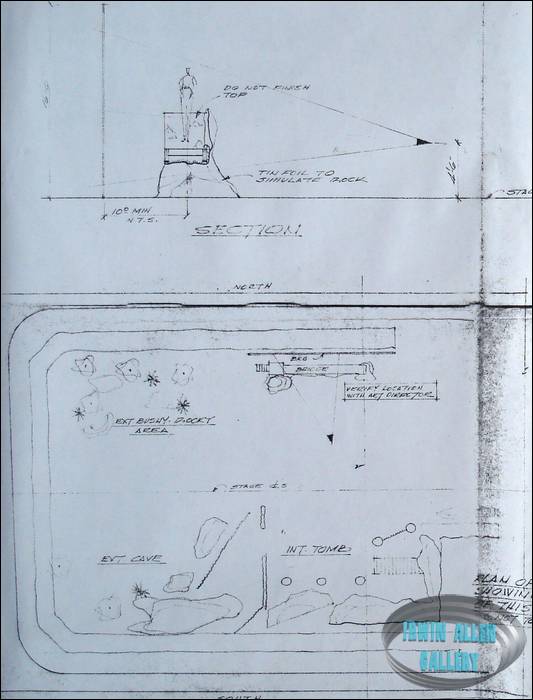 DO NOT FINISH
TOP
TIN FOIL TO
SIMULATE ROCK
4'-6"
STAG
10º MIN
N.T.S.
SECTION
NORTH
BKG
BRIDGE
VERIFY LOCATION
WITH ART DIRECTOR
EXT BUSHY-ROCKY
AREA
STAGE
EXT CAVE
INT. TOMB
PLAN OF
SHOWIN
OF THIS
IRWIN ALLEN
GALLERY
SOUTH